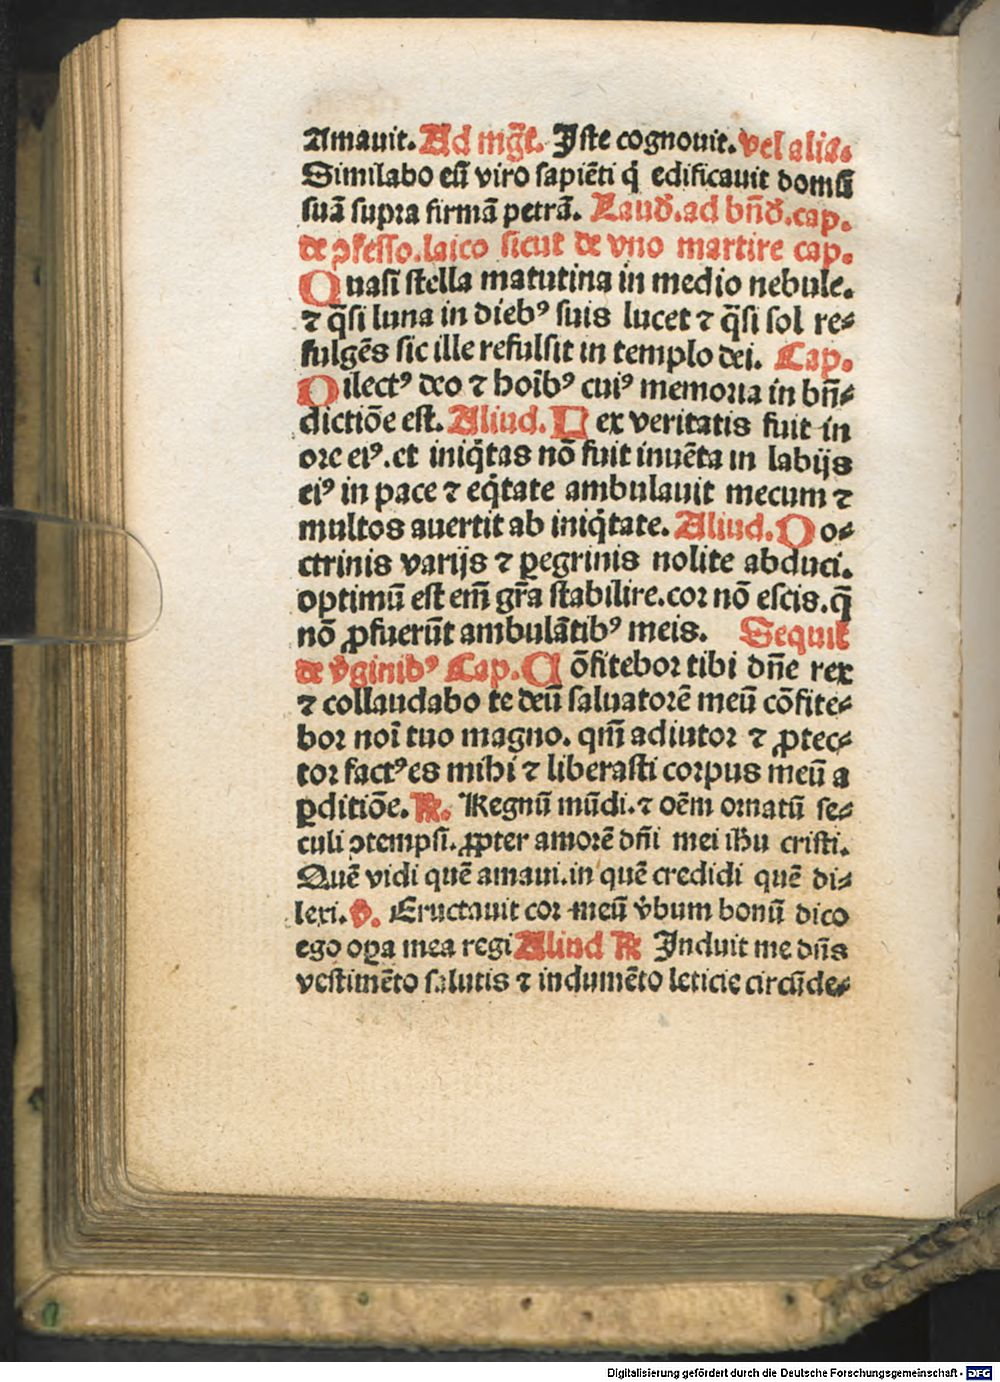 Amauit. Ad mgr̄t. Iste cognouit. vel alia.
Similabo eū viro sapiēti q̄ edificauit domū
suā supra firmā petrā. Laud̄. ad bn̄d̄. cap.
de ꝯfesso. laico sicut de vno martire cap.
Quasi stella matutina in medio nebule.
⁊ q̄si luna in diebꝰ suis lucet ⁊ q̄si sol re⸗
fulgēs sic ille refulsit in templo dei. Cap.
Dilectꝰ deo ⁊ hoībꝰ cuiꝰ memoria in bn̄⸗
dictiōe est. Aliud. Lex veritatis fuit in
ore eiꝰ. et iniq̇tas nō fuit inuēta in labijs
eiꝰ in pace ⁊ eq̇tate ambulauit mecum ⁊
multos auertit ab iniq̇tate. Aliud. Do⸗
ctrinis varijs ⁊ ꝑegrinis nolite abduci.
optimū est em̄ gr̄a stabilire. cor nō escis. q̄
nō ꝓfuerūt ambulātibꝰ meis. Sequit̄
de v̄ginibꝰ Cap. Cōfitebor tibi dn̄e rex
⁊ collaudabo te deū saluatorē meū cōfite⸗
bor noī tuo magno. qm̄ adiutor ⁊ ꝓtec⸗
tor factꝰ es mihi ⁊ liberasti corpus meū a
ꝑditiōe. ℟. Regnū mūdi. ⁊ oēm ornatū se⸗
culi ꝯtempsi. ꝓpter amorē dn̄i mei ihū cristi.
Quē vidi quē amaui. in quē credidi quē di⸗
lexi. ℣. Eructauit cor meū v̄bum bonū dico
ego oꝑa mea regi Aliud ℟ Induit me dn̄s
vestimēto salutis ⁊ indumēto leticie circūde⸗
Digitalisierung gefördert durch die Deutsche Forschungsgemeinschaft - DFG